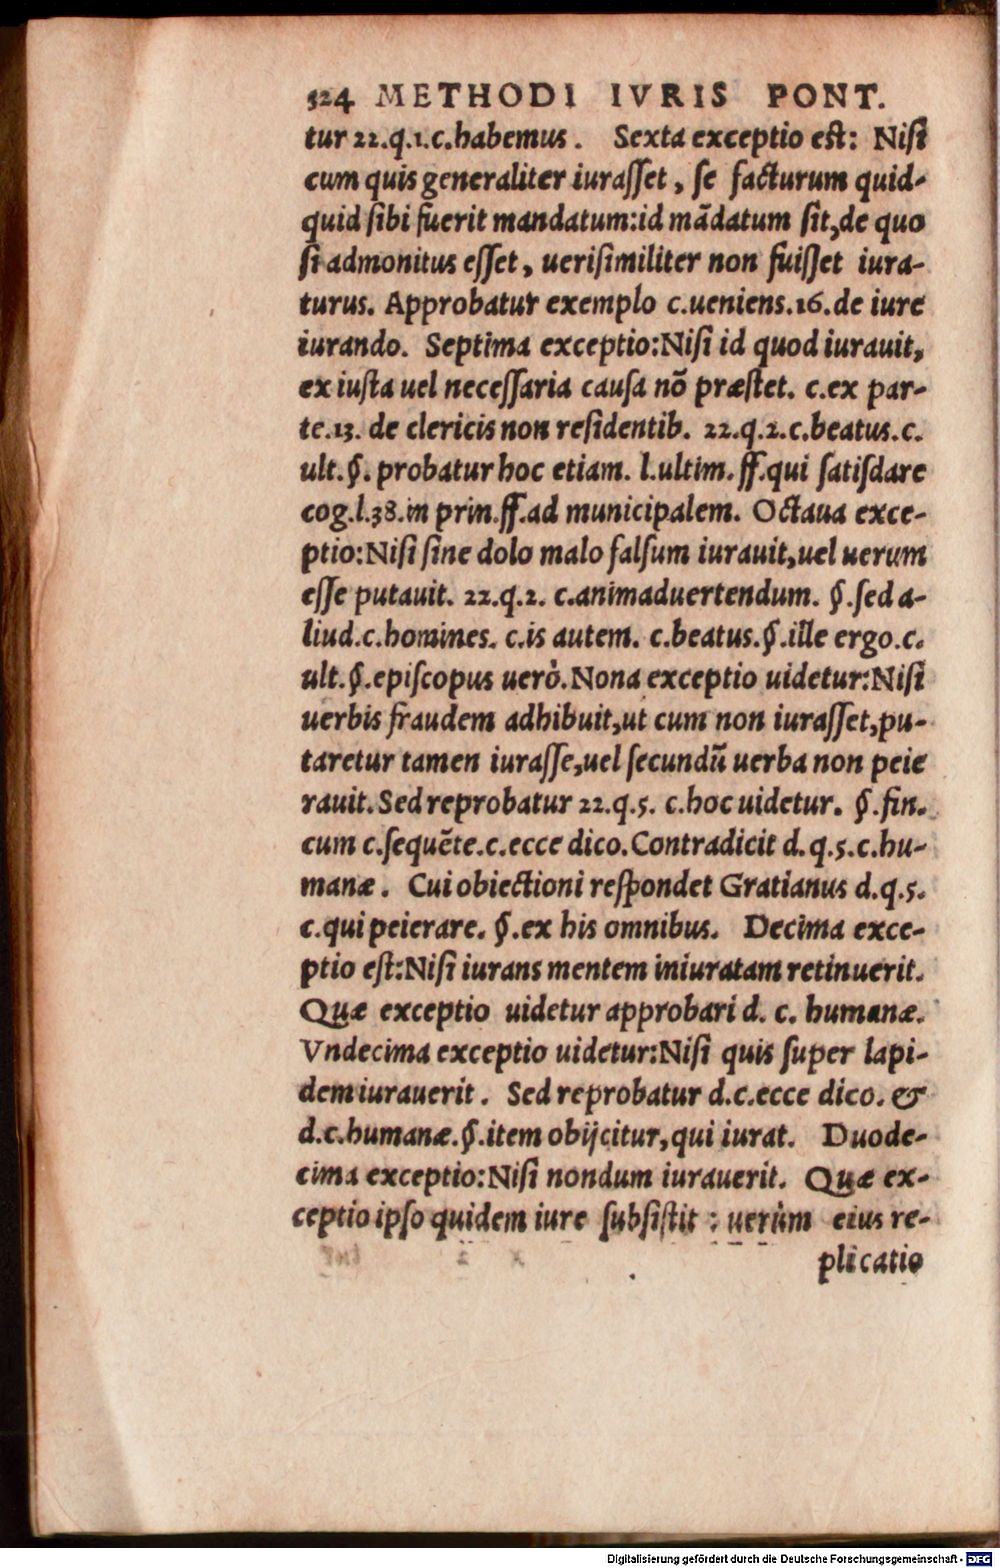 524 METHODI IVRIS PONT.
tur 22.q.1.c.habemus. Sexta exceptio est: Nisi
cum quis generaliter iurasset, se facturum quid-
quid sibi fuerit mandatum:id mãdatum sit,de quo
si admonitus esset, uerisimiliter non fuisset iura-
turus. Approbatur exemplo c.ueniens.16.de iure
iurando. Septima exceptio:Nisi id quod iurauit,
ex iusta uel necessaria causa nõ præstet. c.ex par-
te.13. de clericis non residentib. 22.q.2.c.beatus.c.
ult.§. probatur hoc etiam. l.ultim.ff.qui satisdare
cog.l.38.in prin.ff.ad municipalem. Octaua exce-
ptio:Nisi sine dolo malo falsum iurauit,uel uerum
esse putauit. 22.q.2. c.animaduertendum. §.sed a-
liud.c.homines. c.is autem. c.beatus.§.ille ergo.c.
ult.§.episcopus uerò.Nona exceptio uidetur:Nisi
uerbis fraudem adhibuit,ut cum non iurasset,pu-
taretur tamen iurasse,uel secundũ uerba non peie
rauit.Sed reprobatur 22.q.5. c.hoc uidetur. §.fin.
cum c.sequẽte.c.ecce dico.Contradicit d.q.5.c.hu-
manæ. Cui obiectioni respondet Gratianus d.q.5.
c.qui peierare. §.ex his omnibus. Decima exce-
ptio est:Nisi iurans mentem iniuratam retinuerit.
Quæ exceptio uidetur approbari d. c. humanæ.
Vndecima exceptio uidetur:Nisi quis super lapi-
dem iurauerit. Sed reprobatur d.c.ecce dico. &
d.c.humanæ.§.item obijcitur,qui iurat. Duode-
cima exceptio:Nisi nondum iurauerit. Quæ ex-
ceptio ipso quidem iure subsistit : uerùm eius re-
plicatio
Digitalisierung gefördert durch die Deutsche Forschungsgemeinschaft - DFG